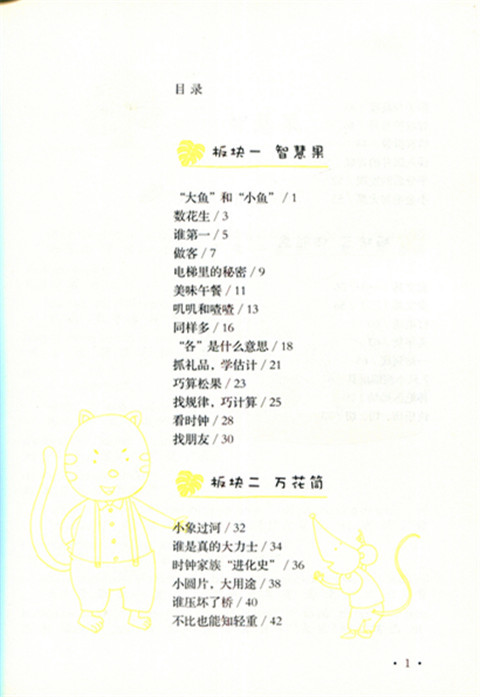 目录
板块一 智慧果
“大鱼”和“小鱼” / 1
数花生 / 3
谁第一 / 5
做客 / 7
电梯里的秘密 / 9
美味午餐 / 11
叽叽和喳喳 / 13
同样多 / 16
“各”是什么意思 / 18
抓礼品，学估计 / 21
巧算松果 / 23
找规律，巧计算 / 25
看时钟 / 28
找朋友 / 30
板块二 万花筒
小象过河 / 32
谁是真的大力士 / 34
时钟家族“进化史” / 36
小圆片，大用途 / 38
谁压坏了桥 / 40
不比也能知轻重 / 42
• 1 •